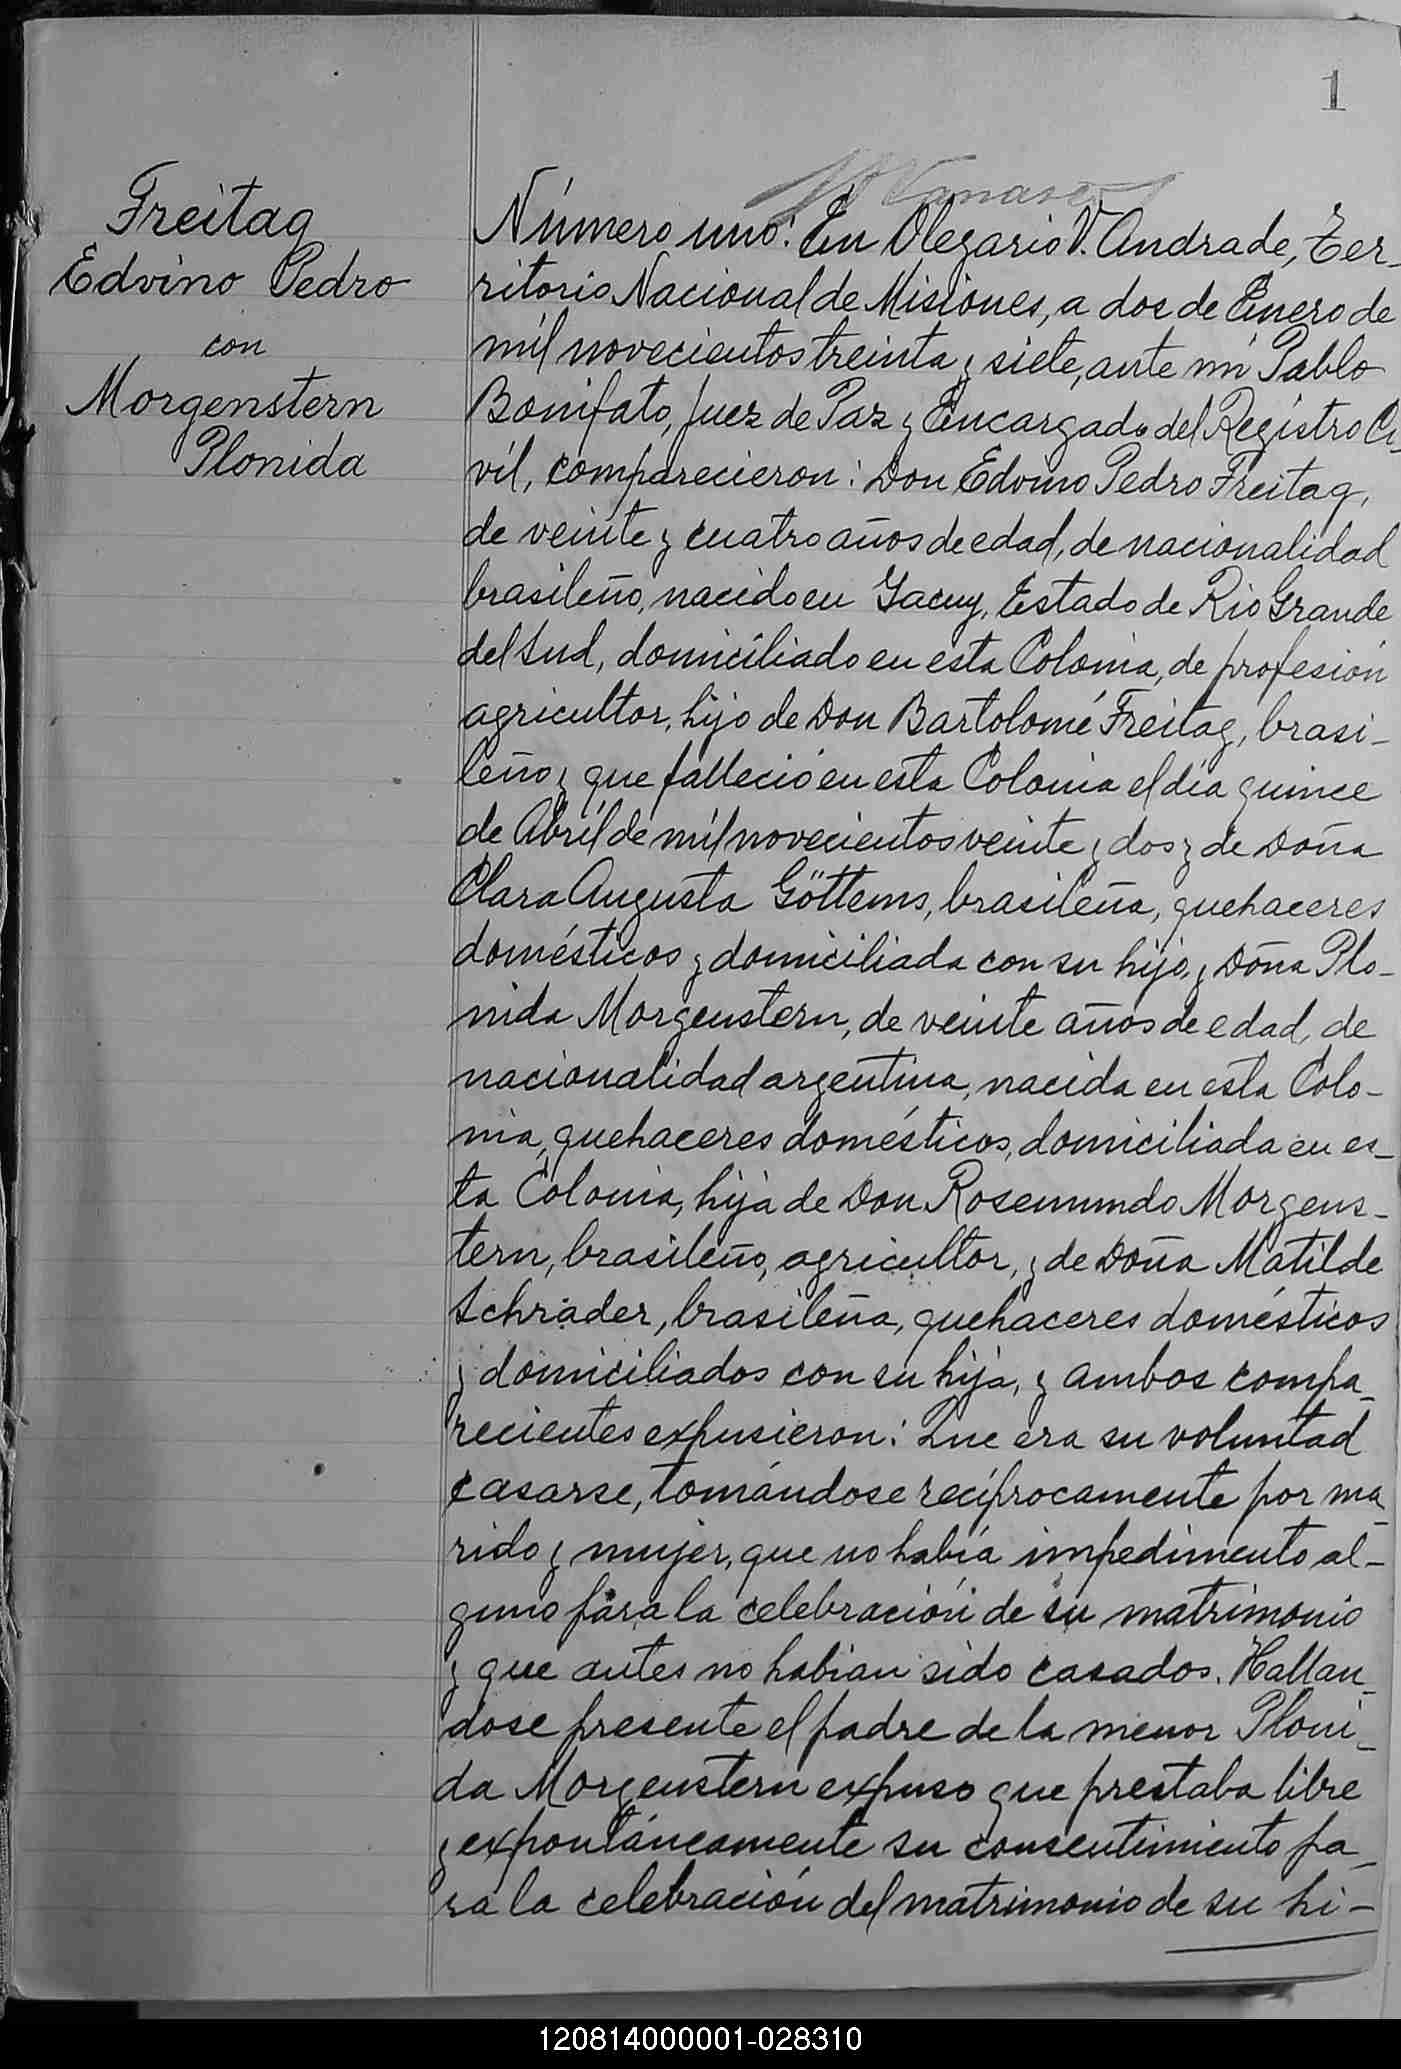 1
Freitag
Edvino Pedro
con
Morgenstern
Plonida
Número uno: En Olegario V. Andrade, Ter-
ritorio Nacional de Misiones, a dos de Enero de
mil novecientos treinta y siete, ante mi Pablo
Bonifato, Juez de Paz y Encargado del Registro Ci-
vil, comparecieron: Don Edvino Pedro Freitag,
de veinte y cuatro años de edad, de nacionalidad
brasileño, nacido en Yacuy, Estado de Rio Grande
del Sud, domiciliado en esta Colonia, de profesión
agricultor, hijo de Don Bartolomé Freitag, brasi-
leño y que falleció en esta Colonia el día quince
de Abril de mil novecientos veinte y dos y de Doña
Clara Augusta Göttems, brasileña, quehaceres
domésticos y domiciliada con su hijo, y Doña Plo-
nida Morgenstern, de veinte años de edad, de
nacionalidad argentina, nacida en esta Colo-
nia, quehaceres domésticos, domiciliada en es-
ta Colonia, hija de Don Rosemundo Morgens-
tern, brasileño, agricultor, y de Doña Matilde
Schrader, brasileña, quehaceres domésticos
y domiciliados con su hija, y ambos compa-
recientes expusieron: Que era su voluntad
casarse, tomándose recíprocamente por ma-
rido y mujer, que no había impedimento al-
guno para la celebración de su matrimonio
y que antes no habian sido casados. Hallan-
dose presente el padre de la menor Ploni-
da Morgenstern expuso que prestaba libre
y expontáneamente su consentimiento pa-
ra la celebración del matrimonio de su hi-
120814000001-028310